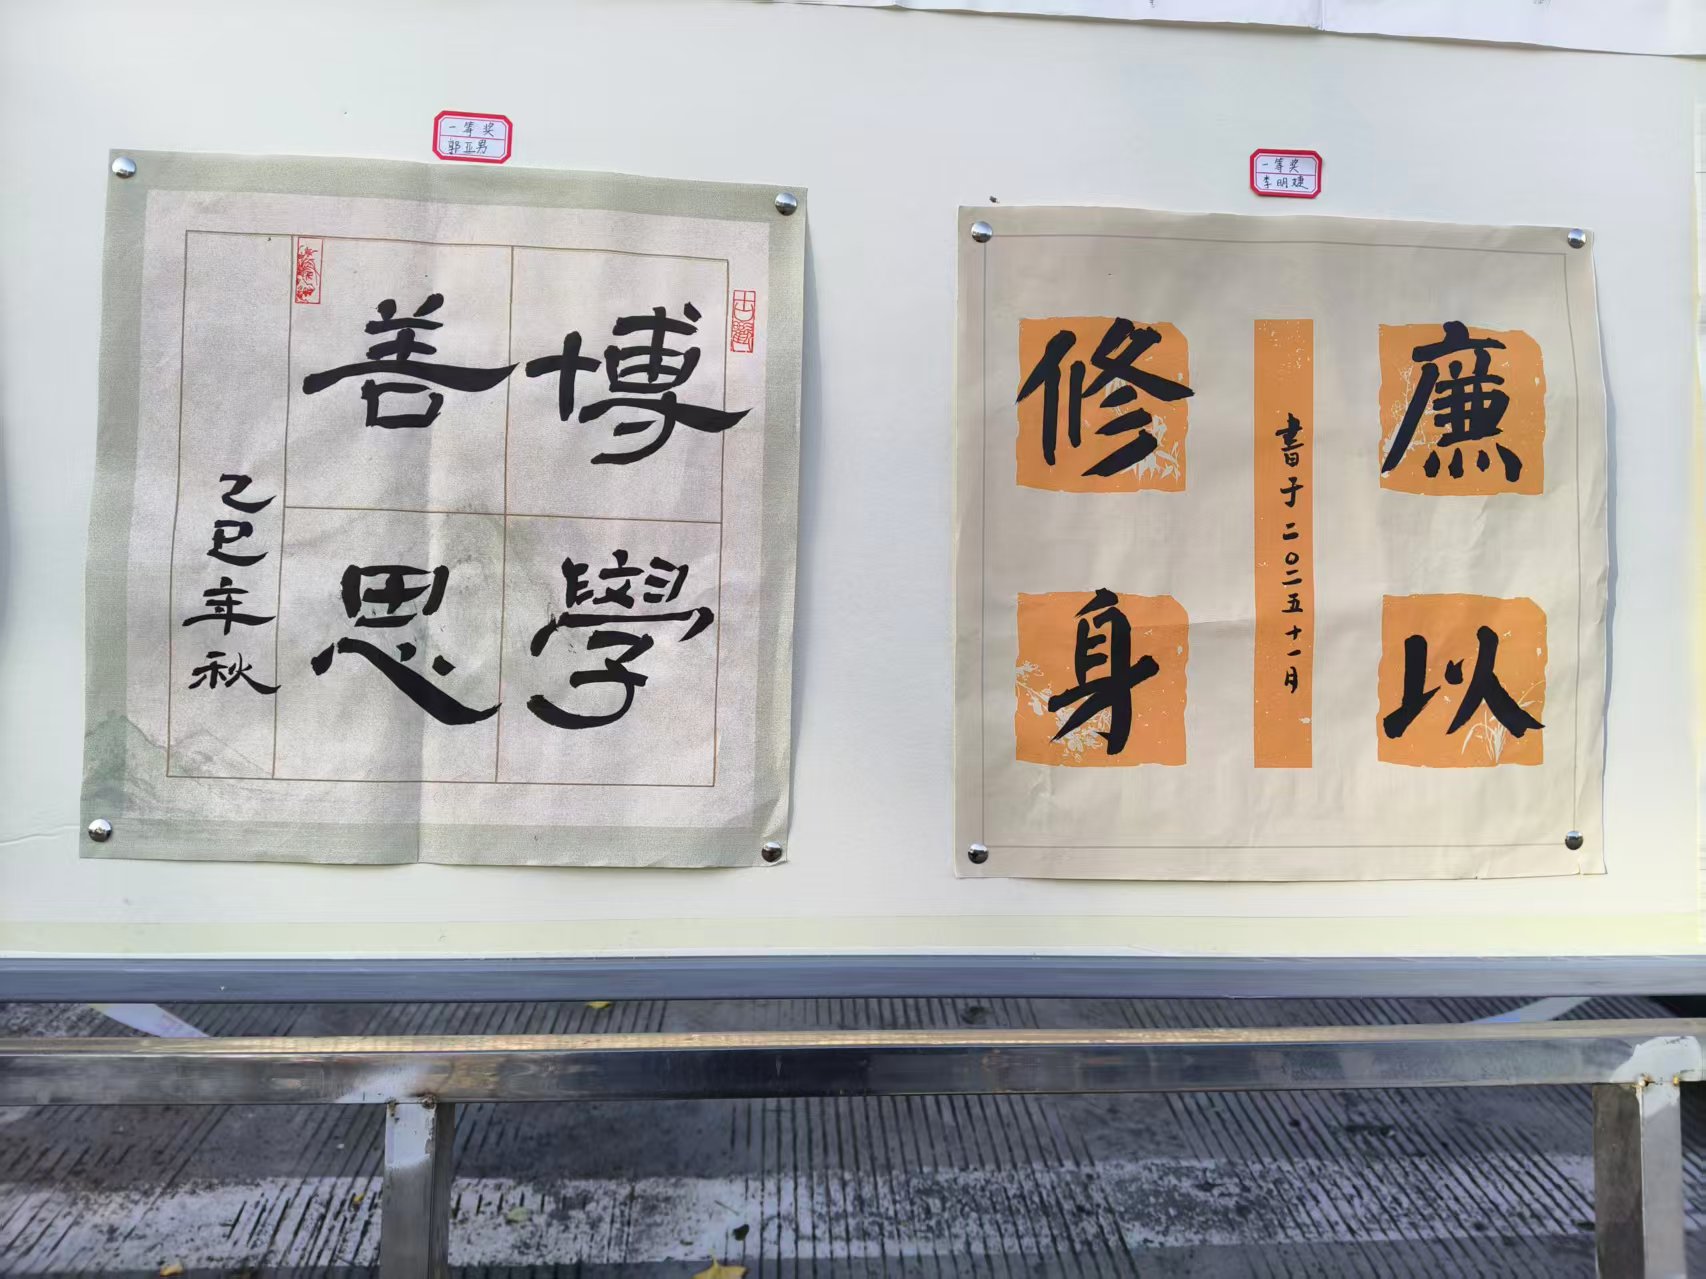 一等奖
郭亚男
博學
善思
乙巳年秋
一等奖
李明婕
廉以
書于二〇二五十一月
修身